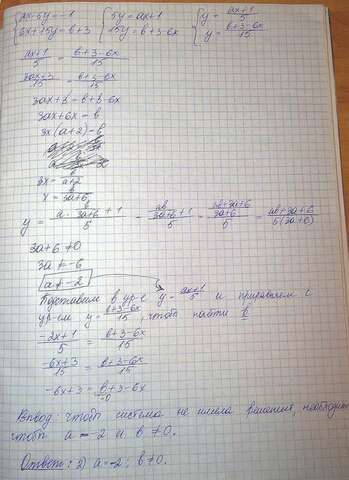 {ax-5y=-1 {5y=ax+1 {y=(ax+1)/5
{6x+15y=b+3 {15y=b+3-6x {y=(b+3-6x)/15
(ax+1)/5 = (b+3-6x)/15
(3ax+3)/15 = (b+3-6x)/15
3ax+3=b+3-6x
3ax+6x=b
3x(a+2)=b
3x=b/(a+2)
x=b/(3a+6)
y=(a·b/(3a+6)+1)/5 = (ab/(3a+6)+1)/5 = ((ab+3a+6)/(3a+6))/5 = (ab+3a+6)/(5(3a+6))
3a+6≠0
3a≠-6
a≠-2
Подставим в ур-е y=(ax+1)/5 и приравняем с
ур-ем y=(b+3-6x)/15, чтобы найти b
(-2x+1)/5 = (b+3-6x)/15
(-6x+3)/15 = (b+3-6x)/15
-6x+3=b+3-6x
=0
Вывод: чтобы система не имела решений, необходимо
чтобы a=-2 и b≠0.
Ответ: 2) a=-2; b≠0.